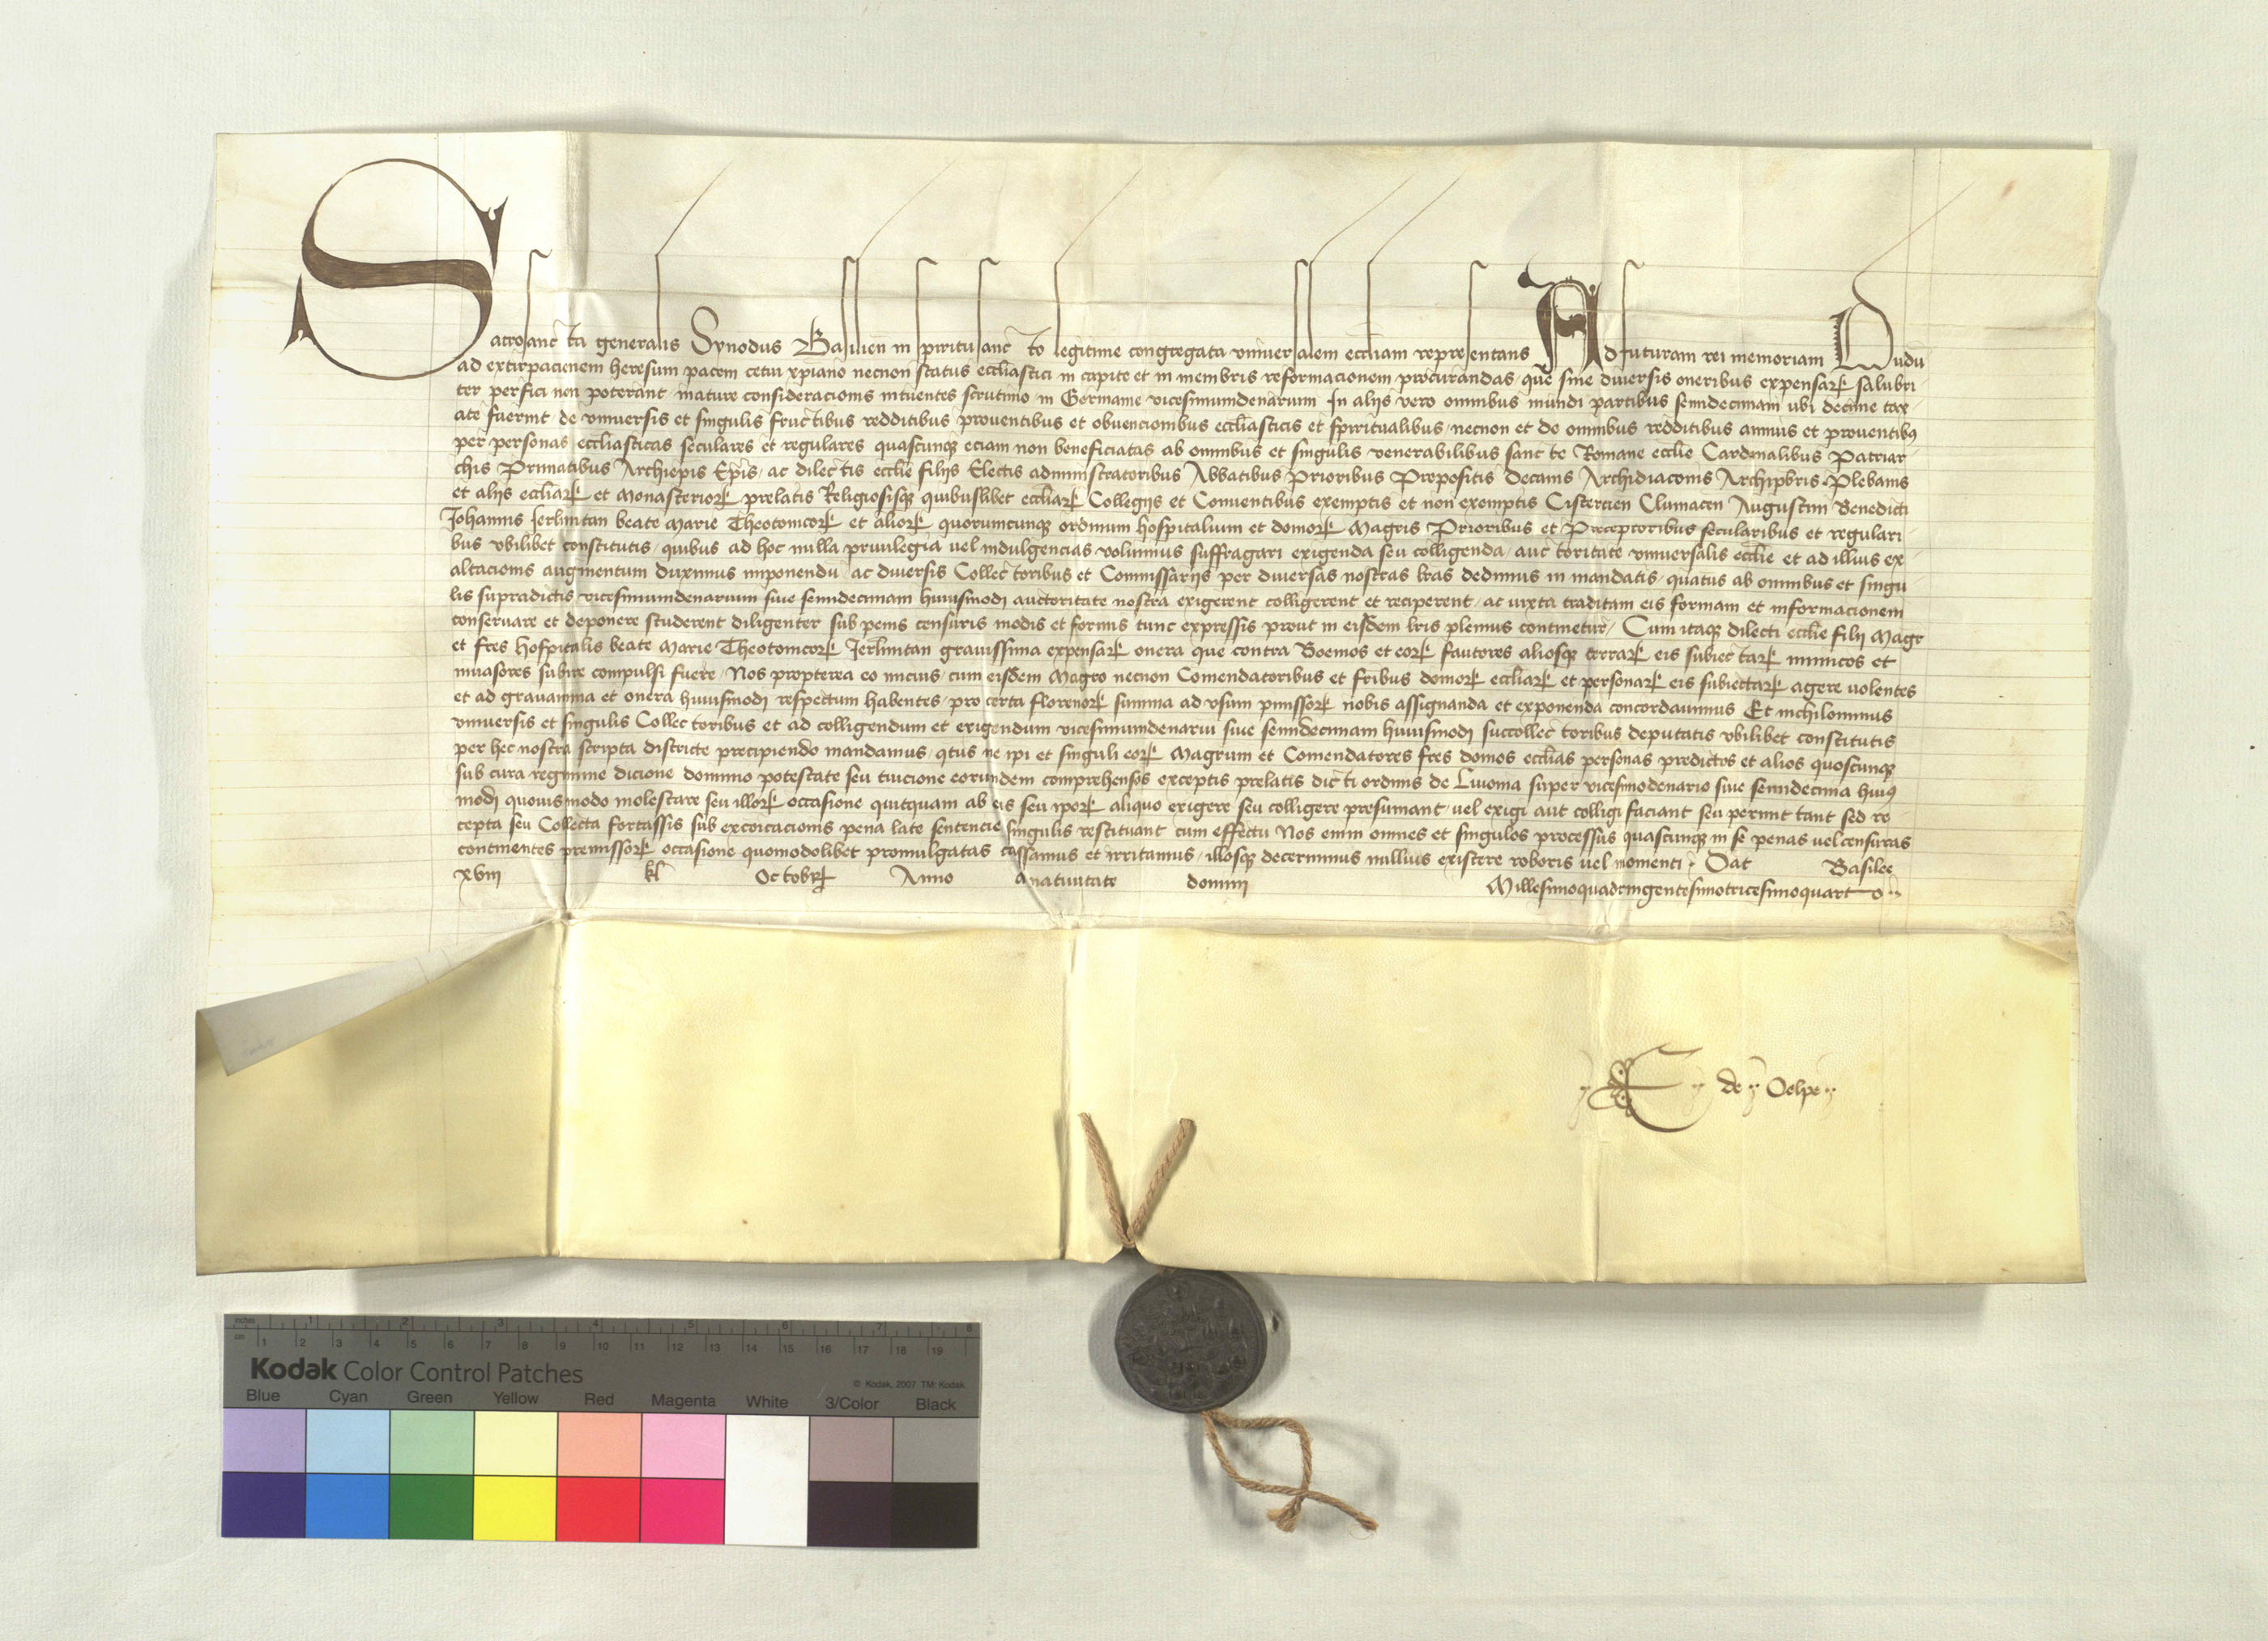 Sacrosancta generalis Synodus Basilien in spiritusancto legitime congregata vniuersalem eccliam representans Ad futuram rei memoriam Dudu
ad extirpacionem heresum pacem cetui xpiano necnon status eccliastici in capite et in membris reformacionem procurandas, que sine diuersis oneribus expensarꝝ salubri
ter perfici non poterant mature consideracionis intuentes scrutinio in Germanie vicesimumdenarium In alijs vero omnibus mundi partibus semidecimam vbi decime tax
ate fuerint de vniuersis et singulis fructibus redditibus prouentibus et obuencionibus eccliasticis et spiritualibus necnon et de omnibus redditibus annuis et prouentibꝰ
per personas eccliasticas seculares et regulares quascunqꝫ eciam non beneficiatas ab omnibus et singulis venerabilibus sancte Romane ecclie Cardinalibus Patriar
chis Primatibus Archiepis Epis, ac dilectis ecclie filijs Electis administratoribus Abbatibus Prioribus Prepositis Decanis Archidiaconis Archipbris Plebanis
et alijs eccliarꝝ et Monasteriorꝝ prelatis Religiosisqꝫ quibuslibet eccliarꝝ Collegijs et Conuentibus exemptis et non exemptis Cistercien Cluniacen Augustini Benedicti
Johannis Jerlimitan beate Marie Theotonicorꝝ et aliorꝝ quorumcunqꝫ ordinum hospitalium et domorꝝ Magris Prioribus et Preceptoribus secularibus et regulari
bus vbilibet constitutis, quibus ad hoc nulla priuilegia vel indulgencias volumus suffragari exigenda seu colligenda, auctoritate vniuersalis ecclie et ad illius ex
altacionis augmentum duximus imponendu ac diuersis Collectoribus et Commissarijs per diuersas nostras lras dedimus in mandatis, quatus ab omnibus et singu
lis supradictis vicesimumdenarium siue semidecimam huiusmodi auctoritate nostra exigerent colligerent et reciperent, ac iuxta traditam eis formam et informacionem
conseruare et deponere studerent diligenter sub penis censuris modis et formis tunc expressis prout in eisdem lris plenius continetur, Cum itaqꝫ dilecti ecclie filij Magr
et fres hospitalis beate Marie Theotonicorꝝ Jerlimitan grauissima expensarꝝ onera que contra Boemos et eorꝝ fautores aliosqꝫ terrarꝝ eis subiectarꝝ inimicos et
inuasores subire compulsi fuere, Nos propterea eo micius, cum eisdem Magro necnon Comendatoribus et fribus domorꝝ eccliarꝝ et personarꝝ eis subiectarꝝ agere volentes
et ad grauamina et onera huiusmodi respectum habentes, pro certa florenorꝝ summa ad vsum pmissorꝝ nobis assignanda et exponenda concordauimus Et nichilominus
vniuersis et singulis Collectoribus et ad colligendum et exigendum vicesimumdenariu siue semidecimam huiusmodi succollectoribus deputatis vbilibet constitutis
per hec nostra scripta districte precipiendo mandamus, qtus ne ipi et singuli eorꝝ Magrum et Comendatores fres domos ecclias personas predictos et alios quoscunqꝫ
sub cura regimine dicione dominio potestate seu tuicione eorundem comprehensos exceptis prelatis dicti ordinis de Liuonia super vicesimodenario siue semidecima huiꝰ
modi quouismodo molestare seu illorꝝ occasione quitquam ab eis seu iporꝝ aliquo exigere seu colligere presumant, vel exigi aut colligi faciant seu permittant sed re
cepta seu Collecta fortassis sub excoicacionis pena late sentencie singulis restituant cum effectu Nos enim omnes et singulos processus quascunqꝫ in se penas vel censuras
continentes premissorꝝ occasione quomodolibet promulgatas cassamus et irritamus, illosqꝫ decernimus nullius existere roboris vel momenti. Dat Basilee
xviij kl Octobrꝝ Anno anatiuitate domini Millesimoquadringentesimotricesimoquarto
de Oelpe
inches 1 2 3 4 5 6 7 8
cm 1 2 3 4 5 6 7 8 9 10 11 12 13 14 15 16 17 18 19
Kodak Color Control Patches
© Kodak, 2007 TM: Kodak
Blue Cyan Green Yellow Red Magenta White 3/Color Black